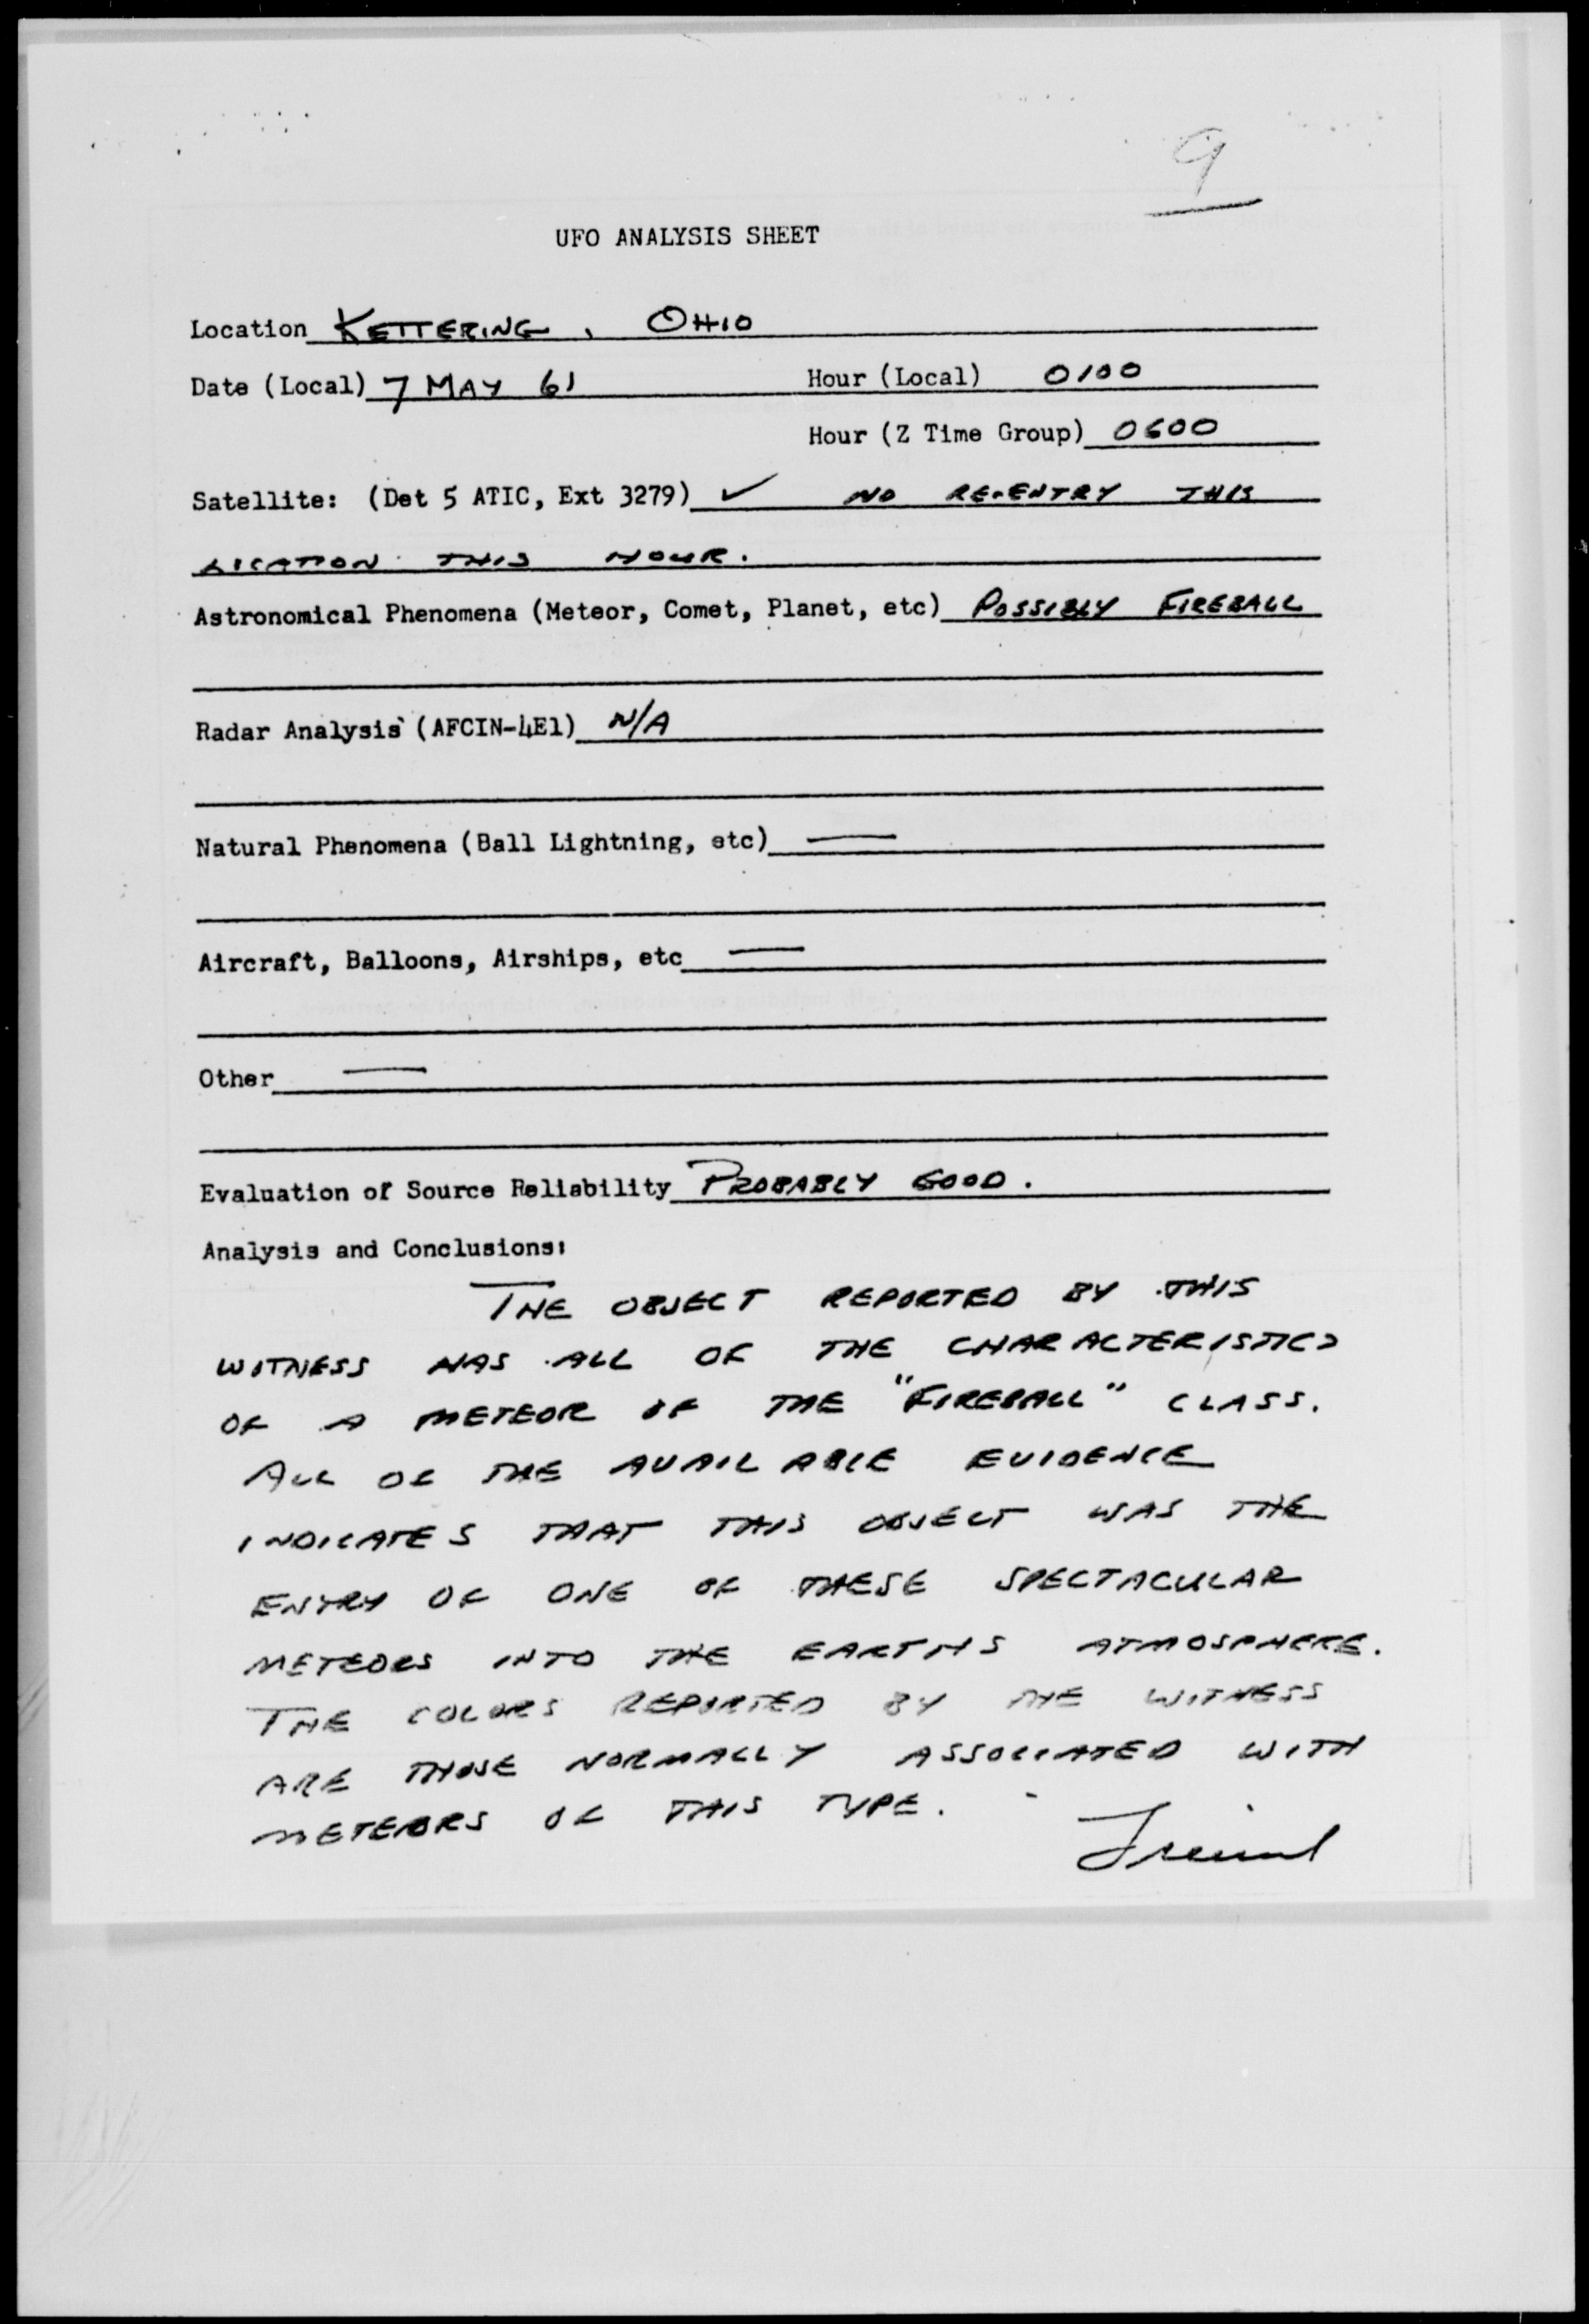 9
UFO ANALYSIS SHEET
Location KETTERING, OHIO
Date (Local) 7 MAY 61 Hour (Local) 0100
Hour (Z Time Group) 0600
Satellite: (Det 5 ATIC, Ext 3279) ✓ NO RE-ENTRY THIS
LOCATION THIS HOUR.
Astronomical Phenomena (Meteor, Comet, Planet, etc) POSSIBLY FIREBALL
Radar Analysis (AFCIN-4E1) N/A
Natural Phenomena (Ball Lightning, etc) —
Aircraft, Balloons, Airships, etc —
Other —
Evaluation of Source Reliability PROBABLY GOOD.
Analysis and Conclusions:
THE OBJECT REPORTED BY THIS
WITNESS HAS ALL OF THE CHARACTERISTICS
OF A METEOR OF THE "FIREBALL" CLASS.
ALL OF THE AVAILABLE EVIDENCE
INDICATES THAT THIS OBJECT WAS THE
ENTRY OF ONE OF THESE SPECTACULAR
METEORS INTO THE EARTHS ATMOSPHERE.
THE COLORS REPORTED BY THE WITNESS
ARE THOSE NORMALLY ASSOCIATED WITH
METEORS OF THIS TYPE.